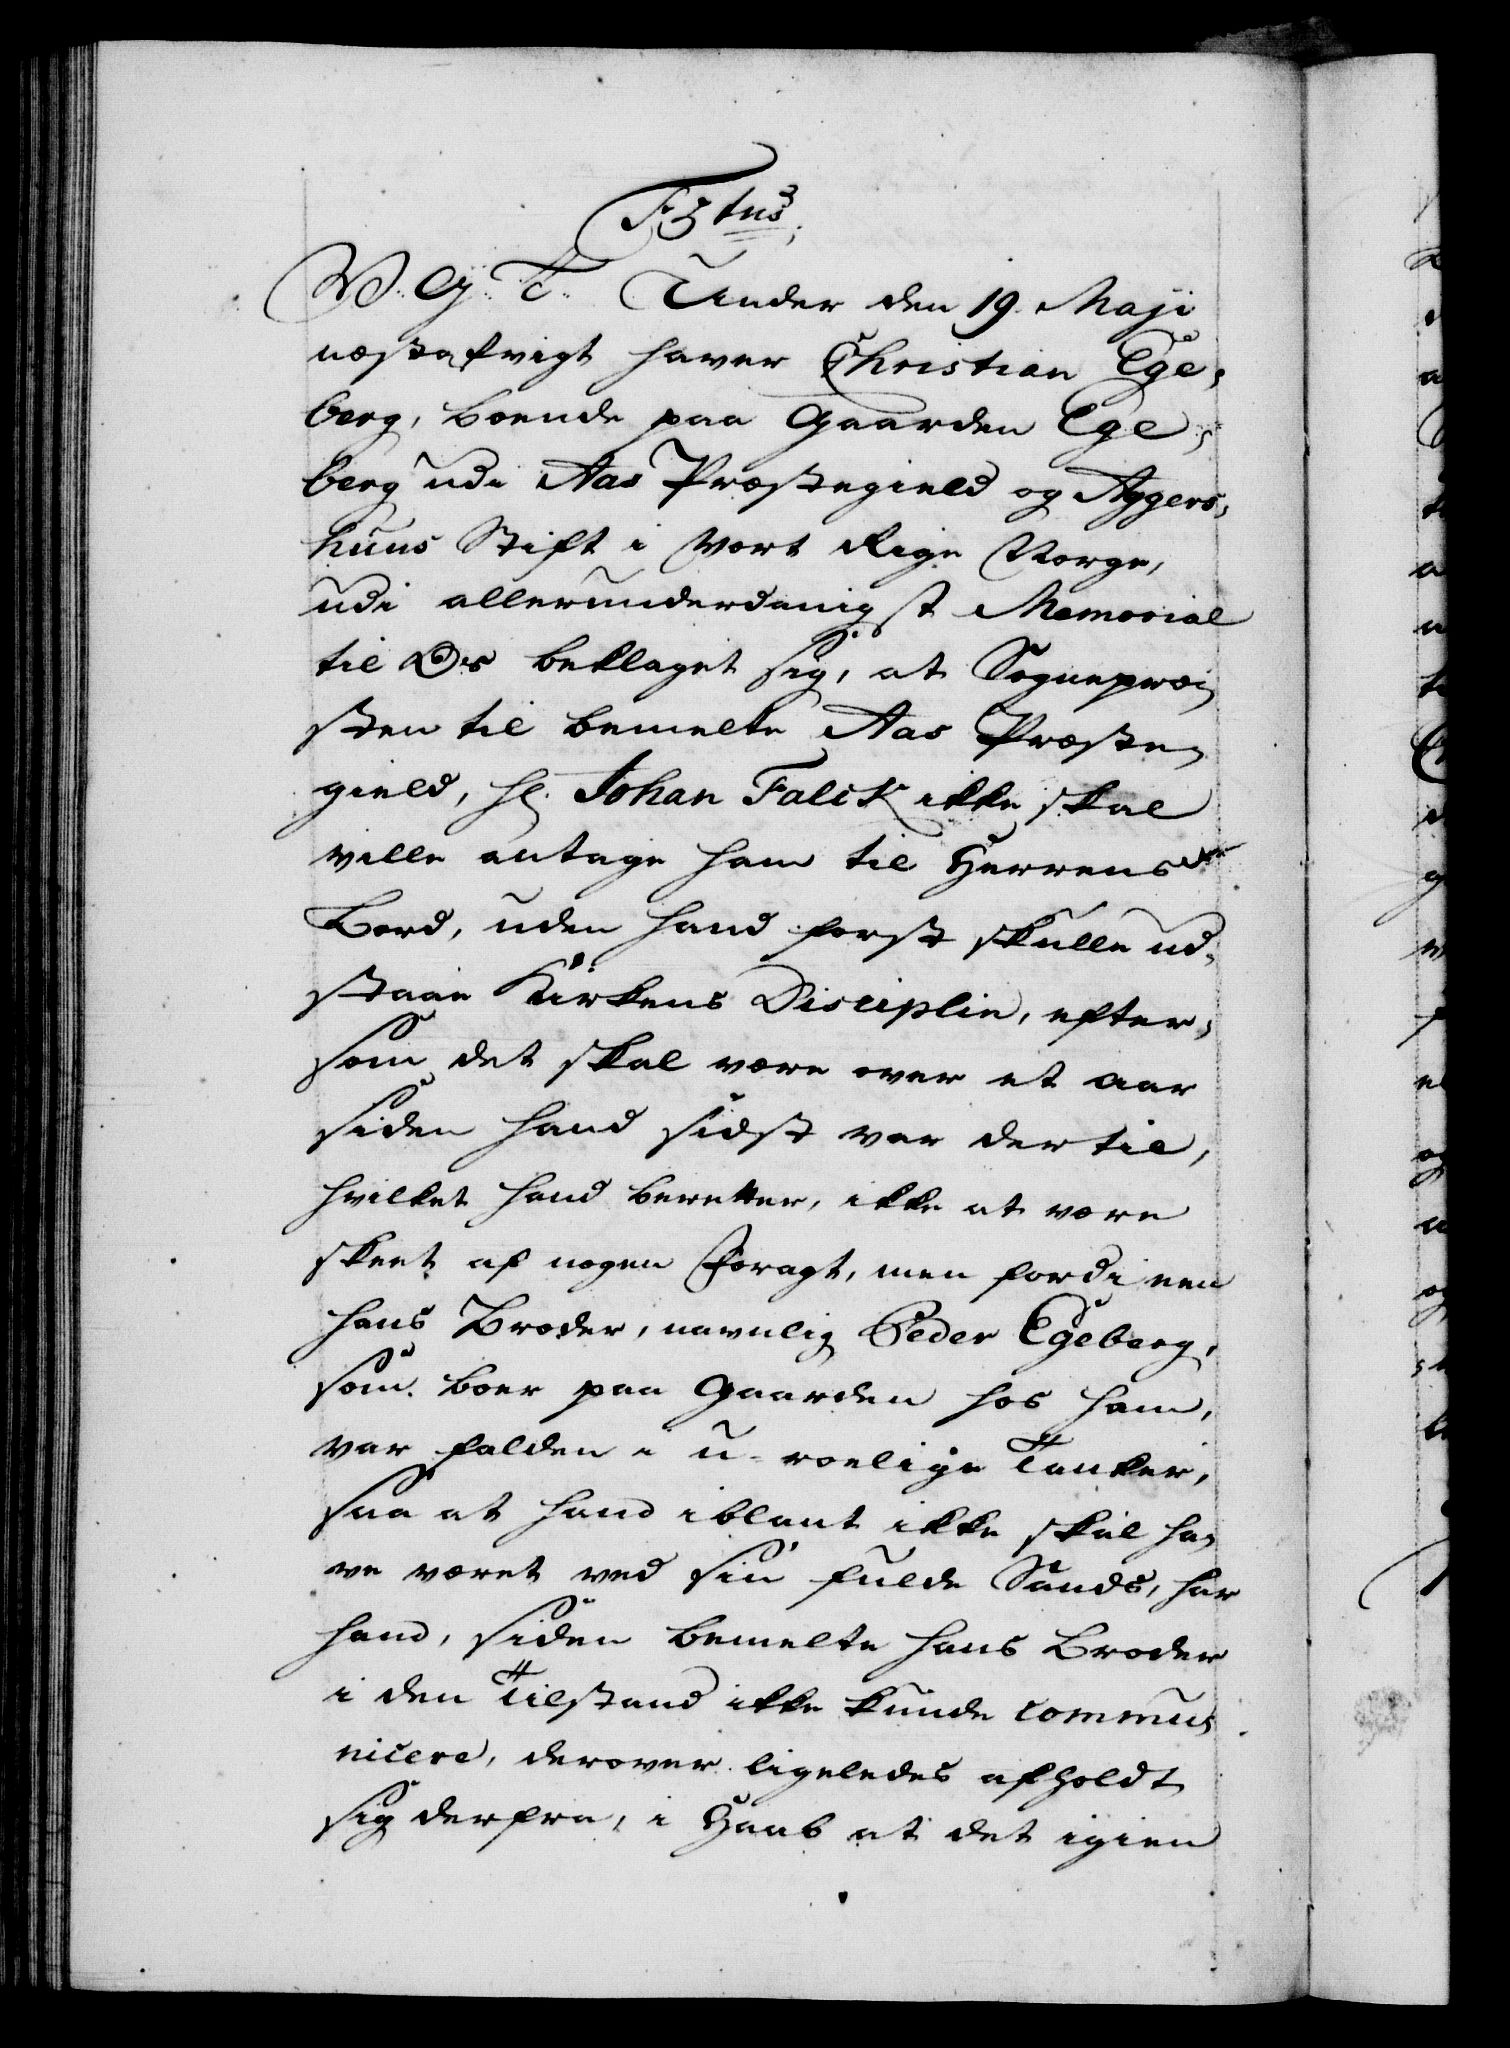 V. G. T. Under den 19. Maji
næstafvigt haver Christian Ege-
berg, boende paa Gaarden Ege-
berg udi Aas Præstegield og Aggers-
huus Stift i Vort Rige Norge,
udi allerunderdanigst Memorial
til Os beklaget sig, at Sognepræ-
sten til bemelte Aas Præste-
gield, Hr. Johan Falck ikke skal
ville antage ham til Herrens
Bord, uden hand først skulle ud-
staae Kirkens Disciplin, efter-
som det skal være over et aar
siden hand sidst var dertil,
hvilket hand beretter, ikke at være
skeet af nogen Foragt, men fordi een
hans Broder, navnlig Peder Egeberg,
som boer paa Gaarden hos ham,
var falden i u-roelige Tanker,
saa at hand iblant ikke skal ha-
ve været ved sin fulde Sands, har
hand, siden bemelte hans Broder
i den Tilstand ikke kunde commu-
nicere, derover ligeledes afholdt
sig derfra, i Haab at det igien